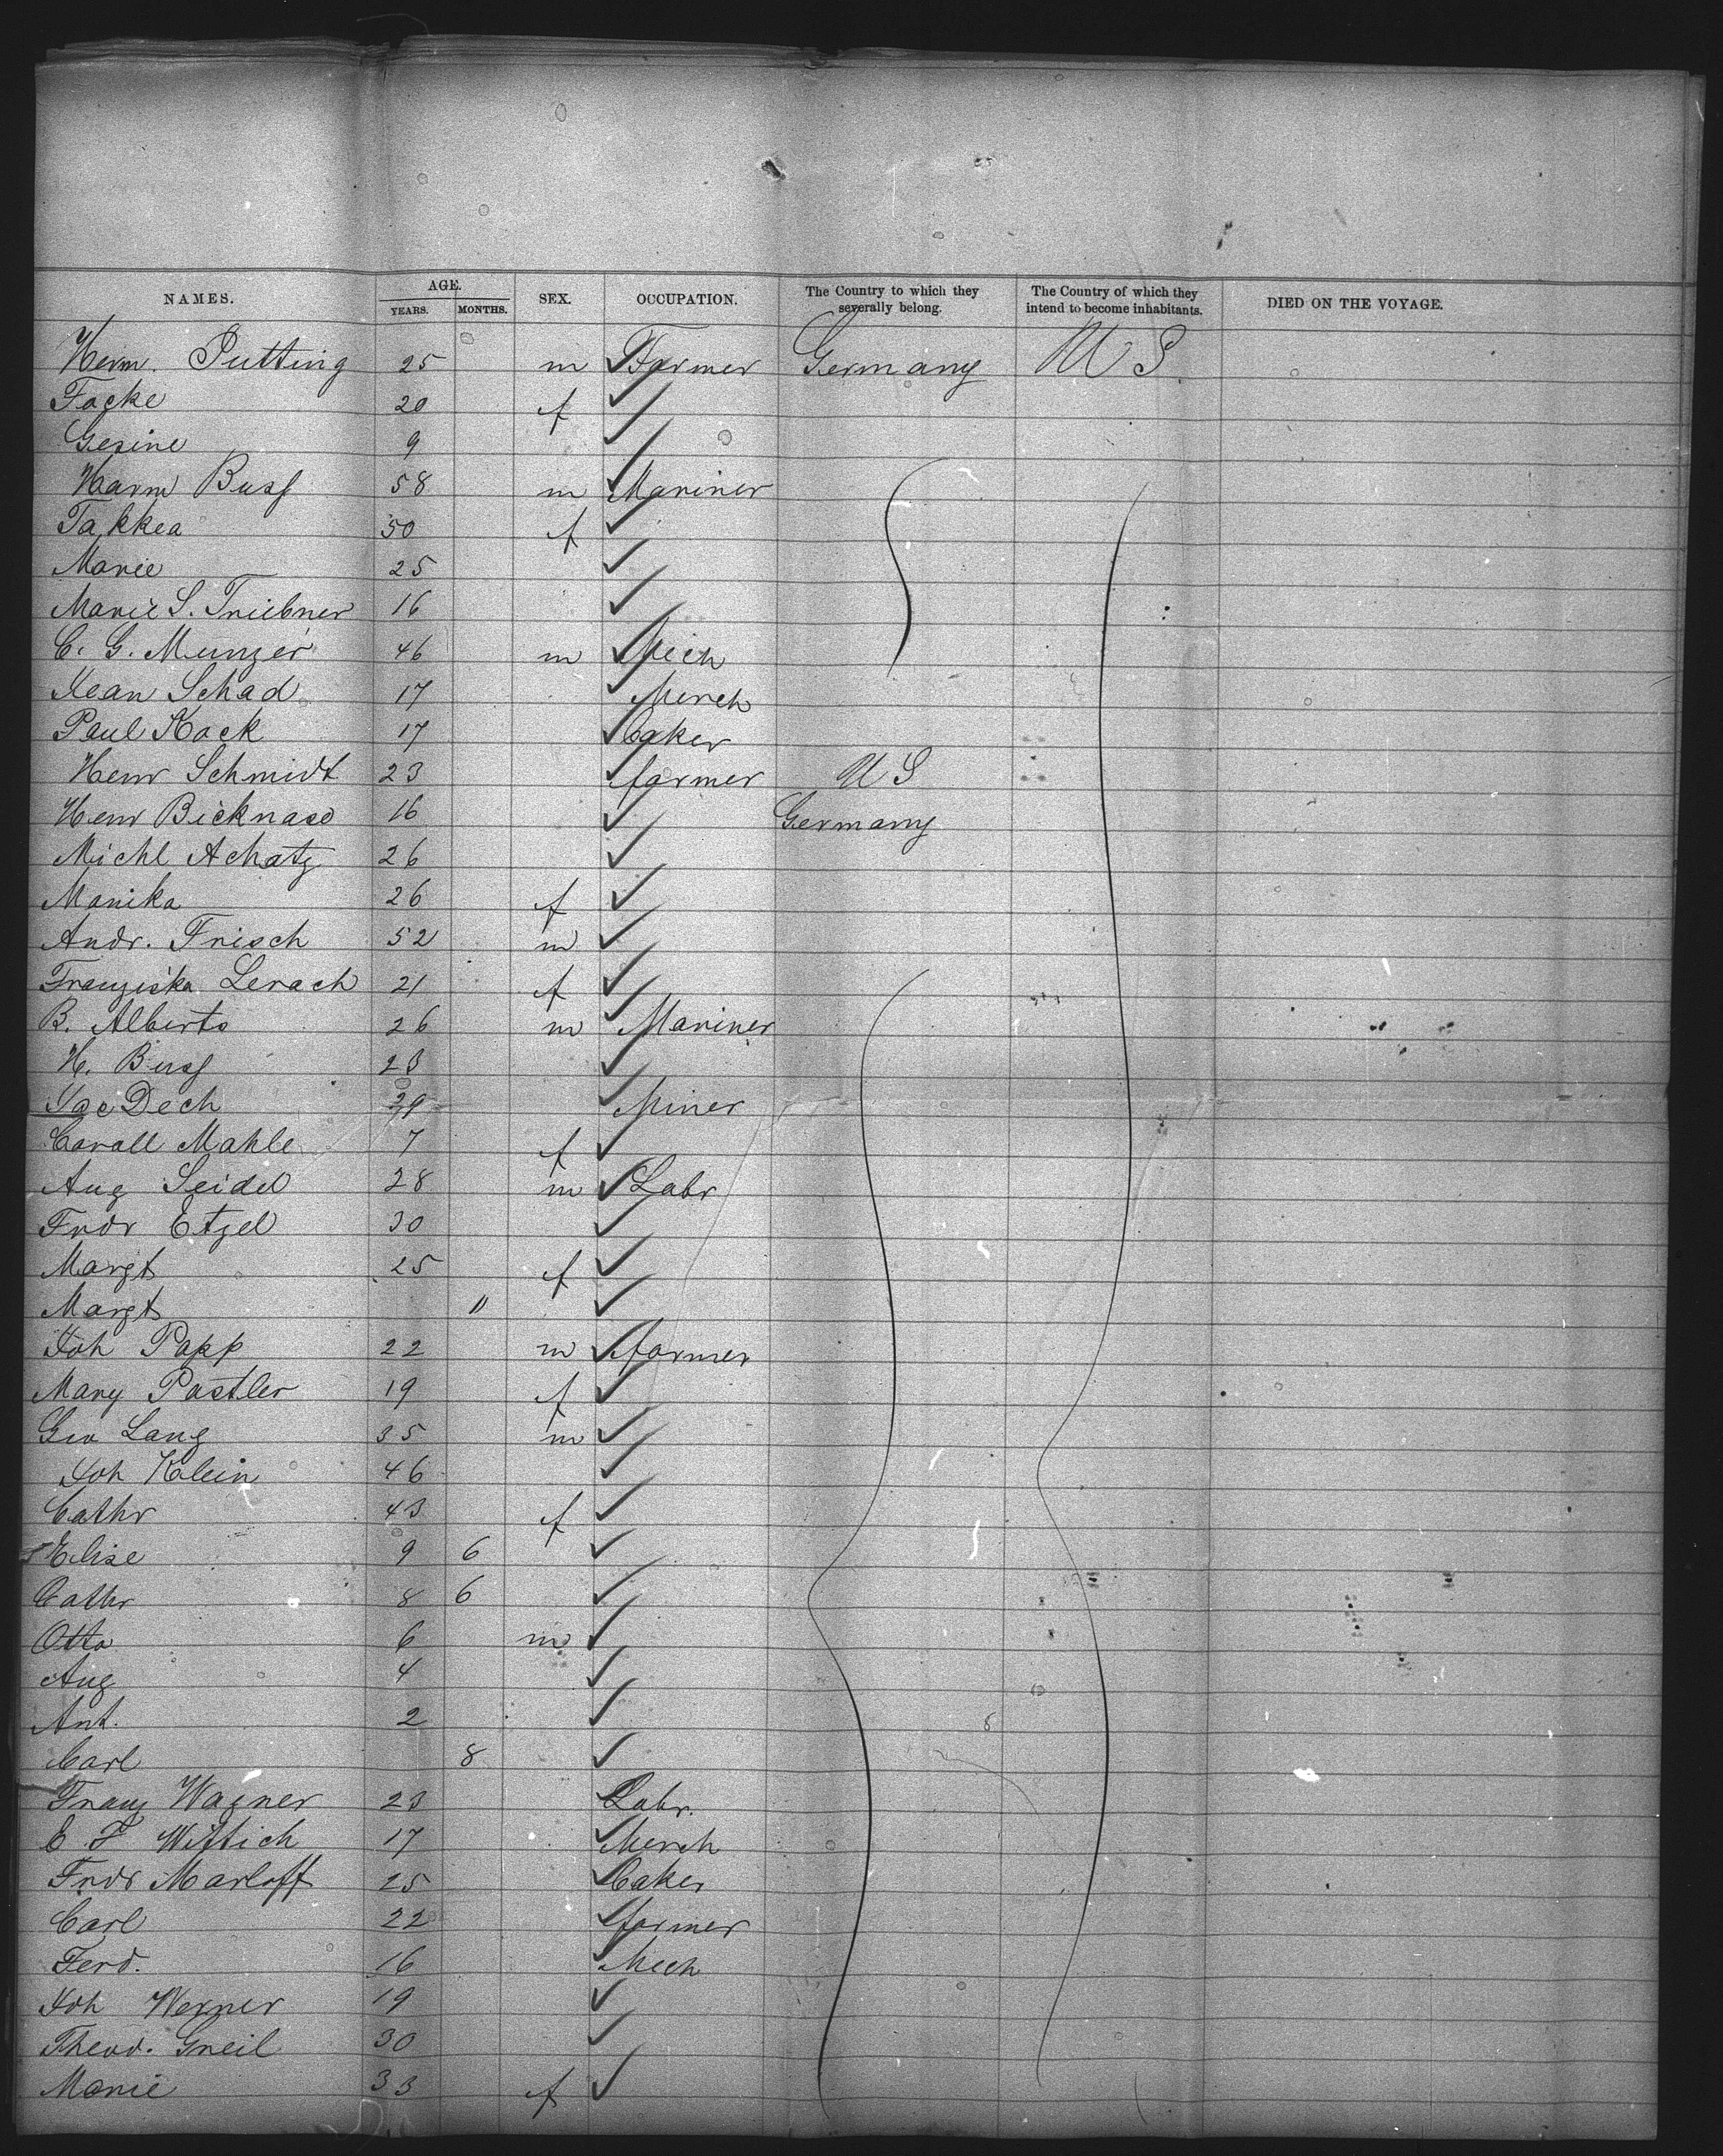 NAMES. AGE. YEARS. MONTHS. SEX. OCCUPATION. The Country to which they severally belong. The Country of which they intend to become inhabitants. DIED ON THE VOYAGE.
Herm. Putting 25 m Farmer Germany U S.
Focke 20 f
Gesine 9
Harm Buss 58 m Mariner
Takkea 50 f
Marie 25
Marie S. Triebner 16
C. G. Munzer 46 m Mech
Jean Schad 17 Merch
Paul Kock 17 baker
Henr Schmidt 23 farmer U S
Henr Bicknase 16 Germany
Michl Achatz 26
Monika 26 f
Andr. Frisch 52 m
Franziska Lerach 21 f
B. Alberts 26 m Mariner
H. Buss 23
Jac Dech Miner
Mahle 7 f
Aug Seidel 28 m Labr
Frdr Etzel 30
Margt 25 f
Margt 11
Joh Papp 22 m farmer
Mary Pastler 19 f
Geo Lang 35 m
Joh Klein 46
Cathr 43 f
Elise 9 6
Cathr 8 6
Otto 6 m
Aug 4
Ant. 2
Carl 8
Franz Wagner 23 Labr.
E F Wittich 17 Merch
Frdr Marloff 25 baker
Carl 22 farmer
Ferd. 16 Mech
Joh Werner 19
Theod. Gneil 30
Marie 33 f